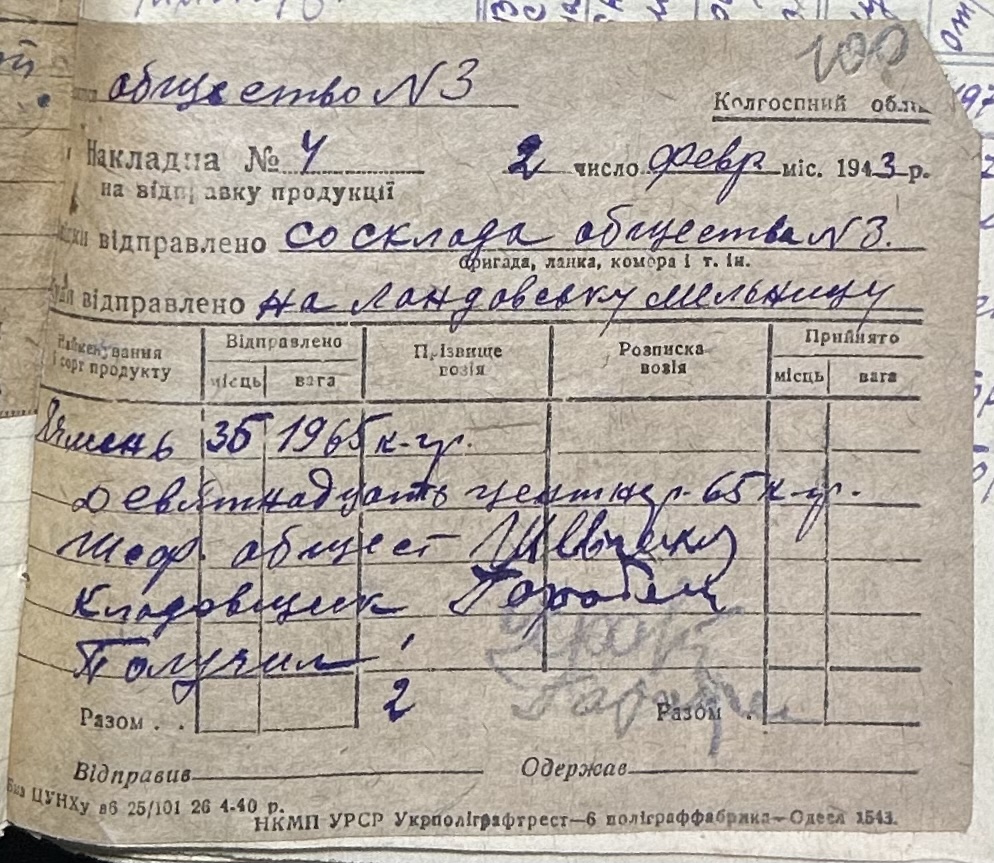 общество N 3
Колгоспний обл
Накладна № 4
2 число февр міс. 1943 р.
на відправку продукції
відправлено со склада общества N 3.
бригада, ланка, комора і т. ін.
відправлено на Ландовську мельницу
Найменування і сорт продукту
Відправлено
Прізвище возія
Розписка возія
Прийнято
місць вага
місць вага
Ячмень 35 1965 к-гр.
Девятнадцать центнер. 65 к-гр.
Шеф. общест
Кладовщик Горобец
Получил
2
Разом . .
Разом .
Відправив
Одержав
ЦУНХу в6 25/101 26 4-40 р.
НКМП УРСР Укрполіграфтрест—6 поліграффабрика—Одеса 1543.